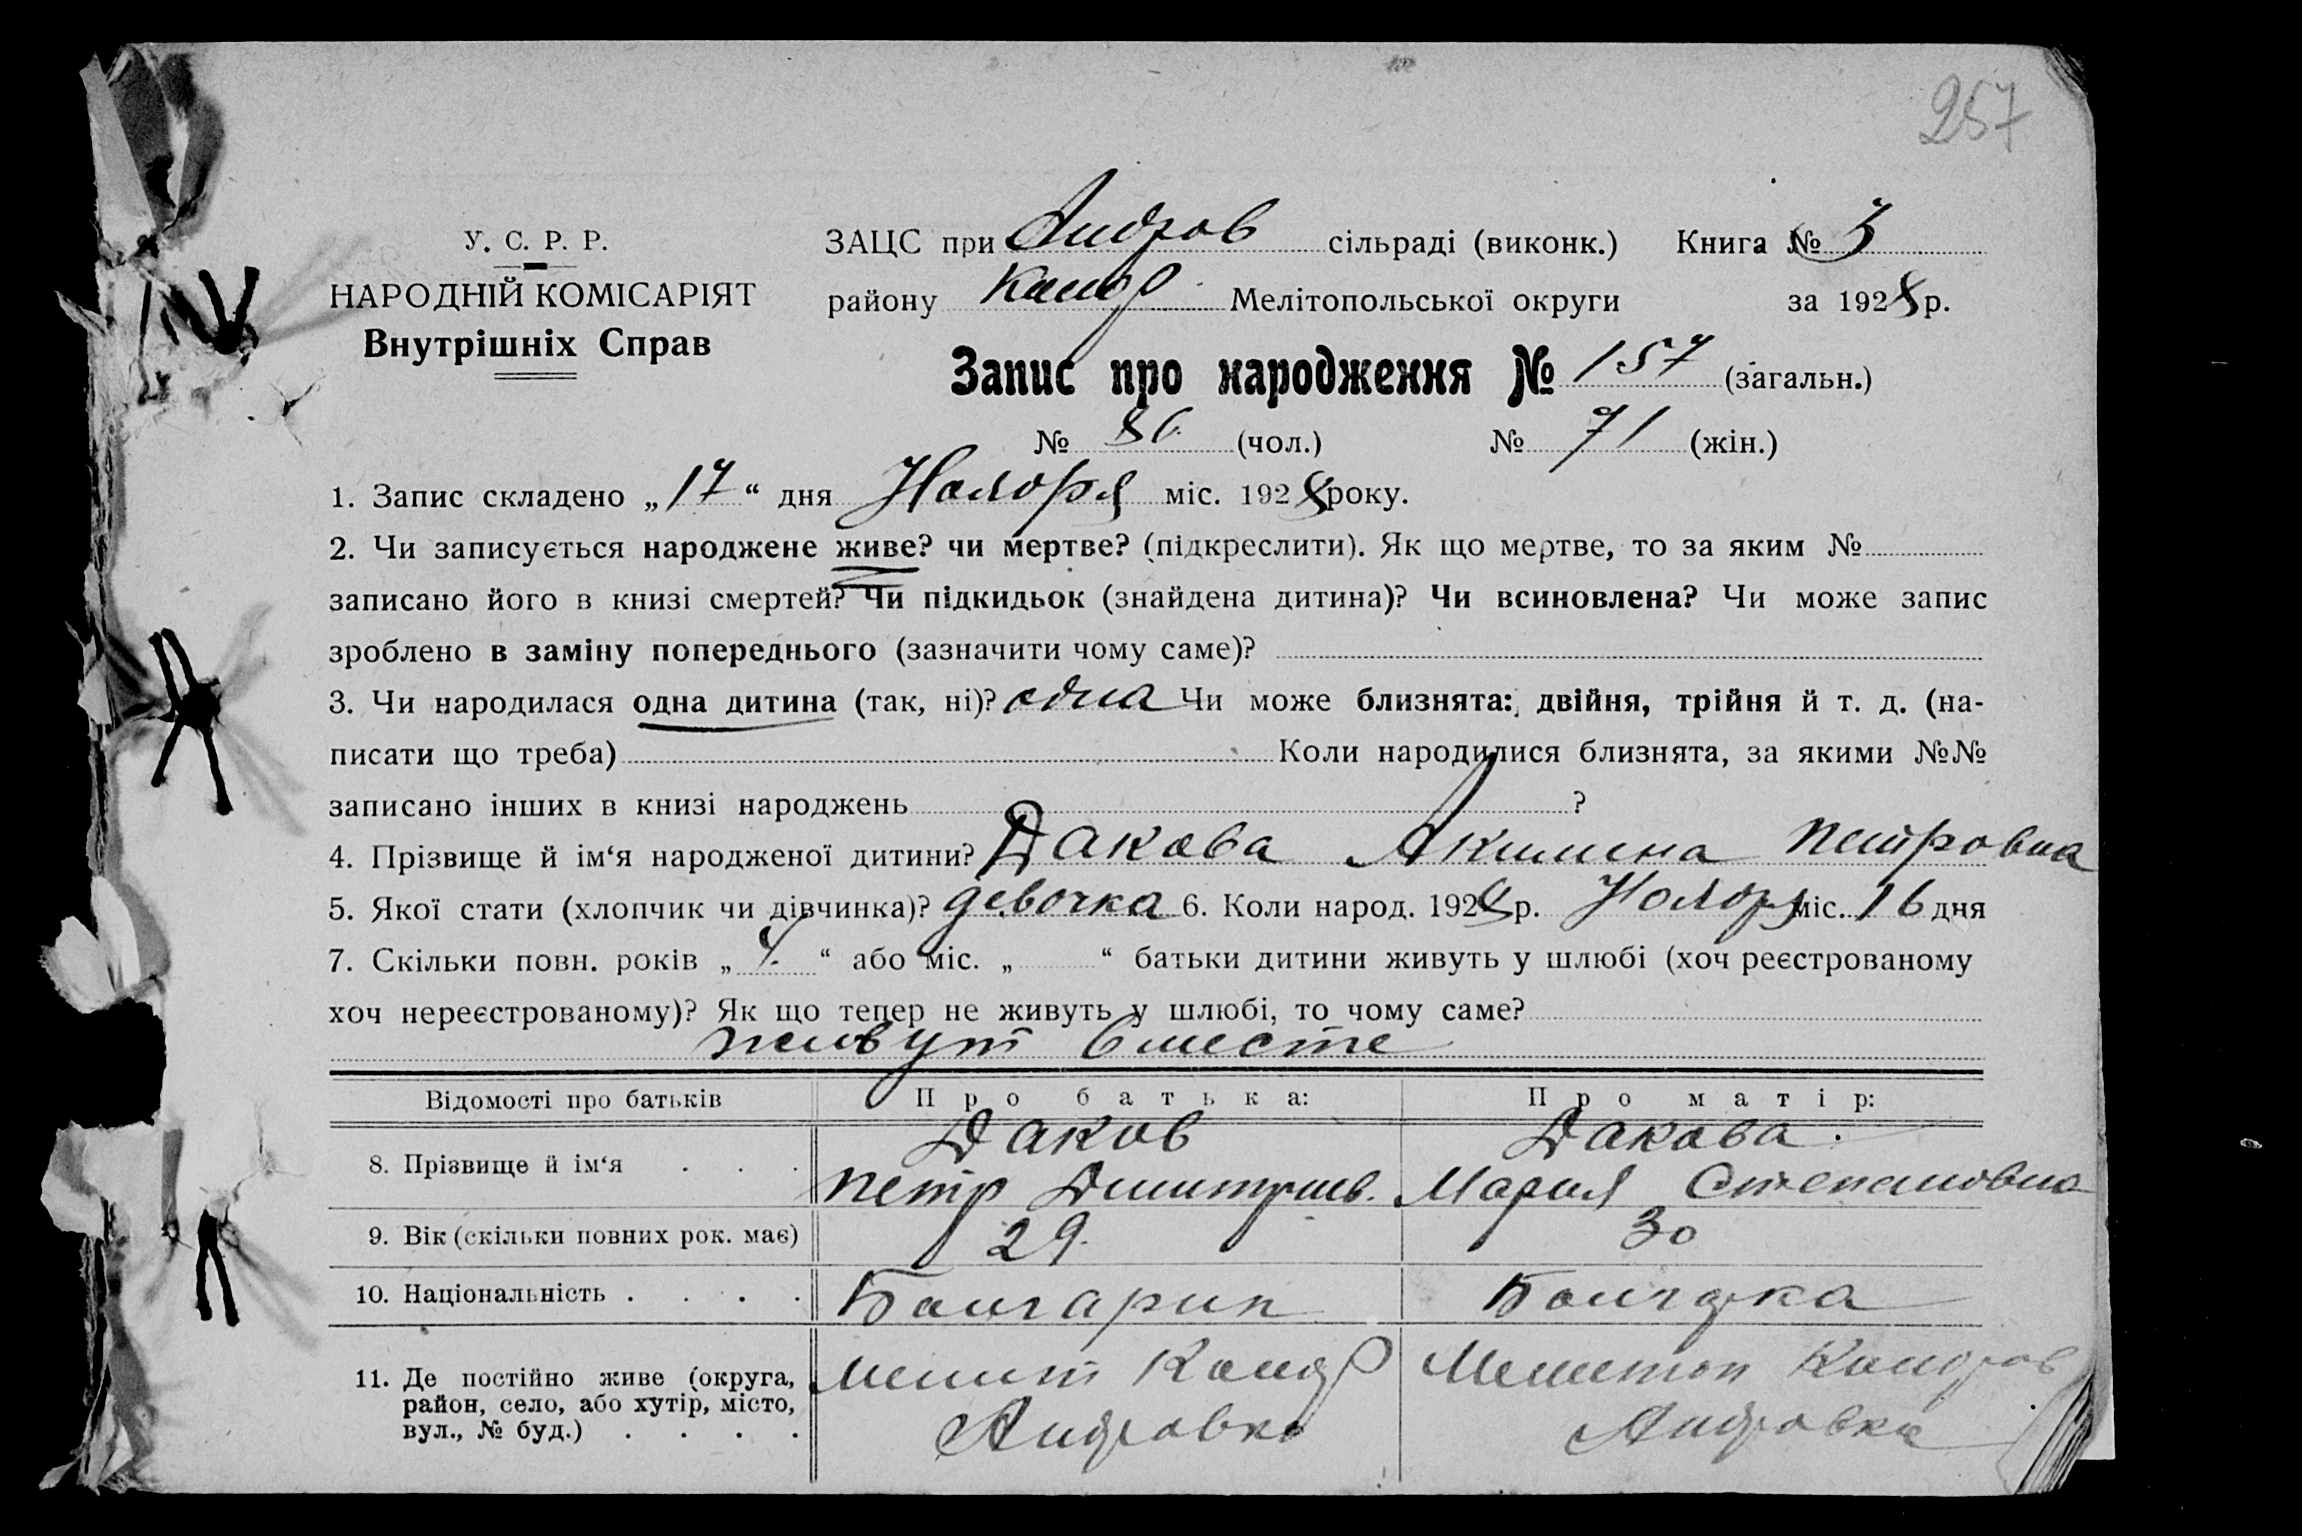 257
У. С. Р. Р.
НАРОДНІЙ КОМІСАРІЯТ
Внутрішніх Справ
ЗАЦС при Андров сільраді (виконк.) Книга № 3
району Мелітопольської округи за 1928 р.
Запис про народження № 157 (загальн.)
№ 86 (чол.) № 71 (жін.)
1. Запис складено „17“ дня Ноября міс. 1928 року.
2. Чи записується народжене живе? чи мертве? (підкреслити). Як що мертве, то за яким №
записано його в книзі смертей? Чи підкидьок (знайдена дитина)? Чи всиновлена? Чи може запис
зроблено в заміну попереднього (зазначити чому саме)?
3. Чи народилася одна дитина (так, ні)? одна Чи може близнята: двійня, трійня й т. д. (на-
писати що треба) Коли народилися близнята, за якими №№
записано інших в книзі народжень ?
4. Прізвище й ім‘я народженої дитини? Дакова Акилина Петровна
5. Якої стати (хлопчик чи дівчинка)? девочка 6. Коли народ. 1928 р. Ноября міс. 16 дня
7. Скільки повн. років „ “ або міс. „ “ батьки дитини живуть у шлюбі (хоч реєстрованому
хоч нереєстрованому)? Як що тепер не живуть у шлюбі, то чому саме?
живут вместе
Відомості про батьків Про батька: Про матір:
8. Прізвище й ім‘я Даков Дакова
Петр Дмитриев. Мария Степановна
9. Вік (скільки повних рок. має) 29. 30
10. Національність Болгарин Болгарка
11. Де постійно живе (округа, район, село, або хутір, місто, вул., № буд.) Мелит Мелитоп
Андровка Андровка